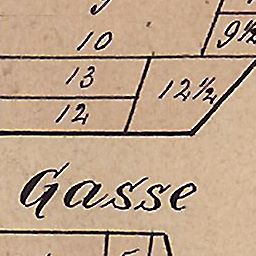 10
9½
13
12½
12
Gasse